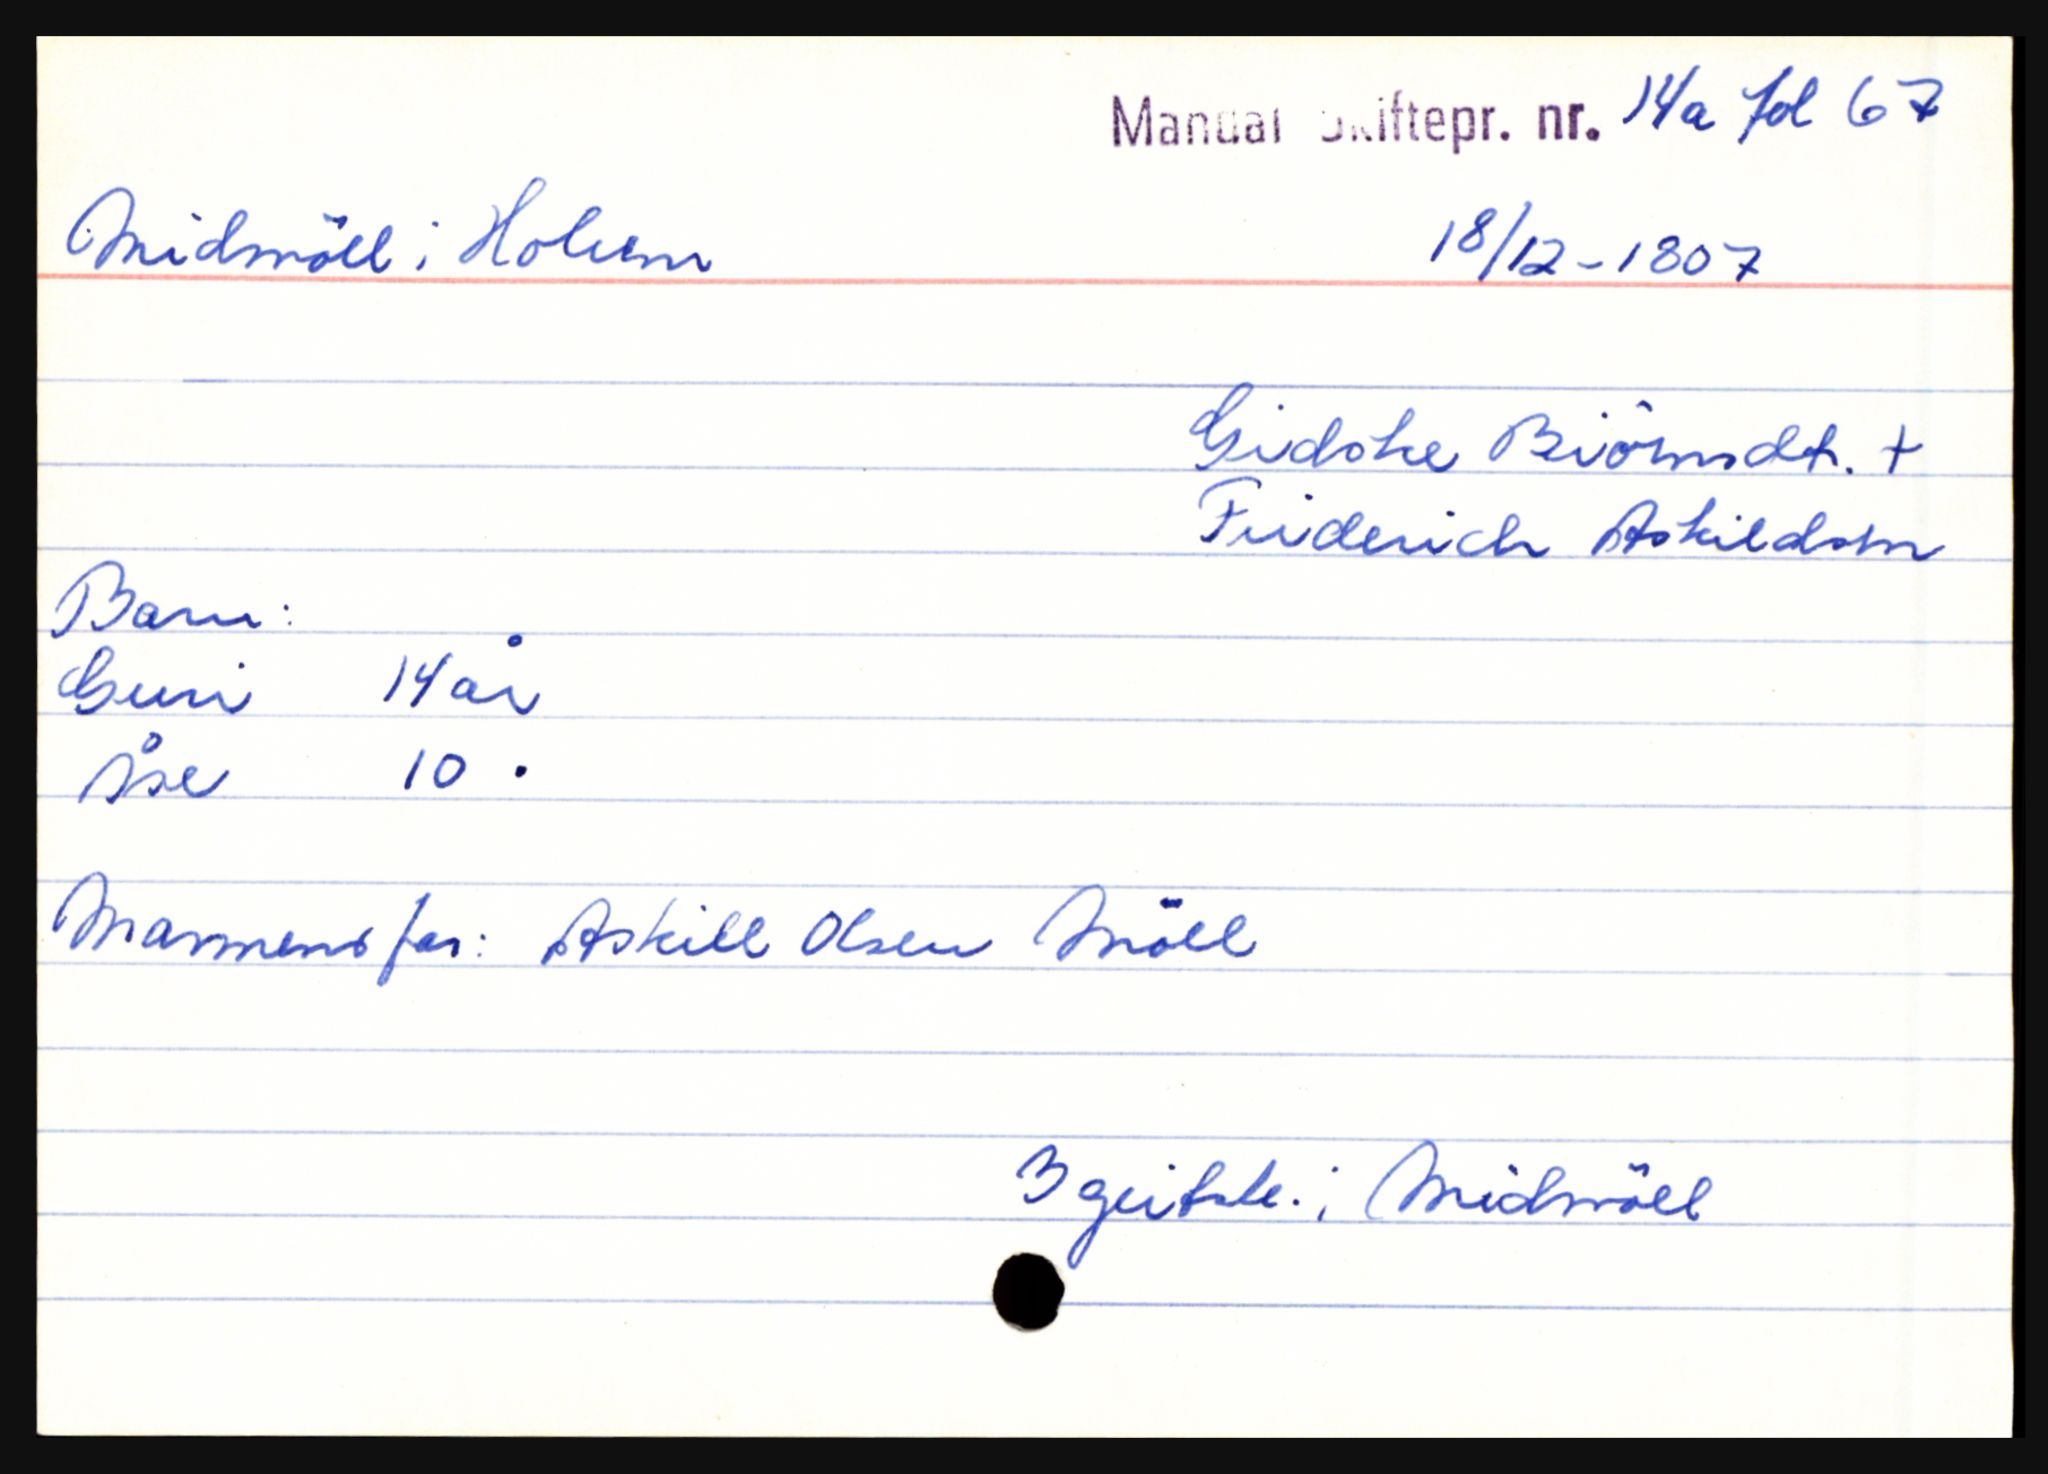 Mandal Skiftepr. nr. 14a fol 67
Midmöll i Holum 18/12-1807
Gidske Biörnsdt. +
Friderich Askildsen
Barn:
Guri 14 år
Åse 10 .
Mannens far: Askill Olsen Möll
3 geitsk. i Midmöll